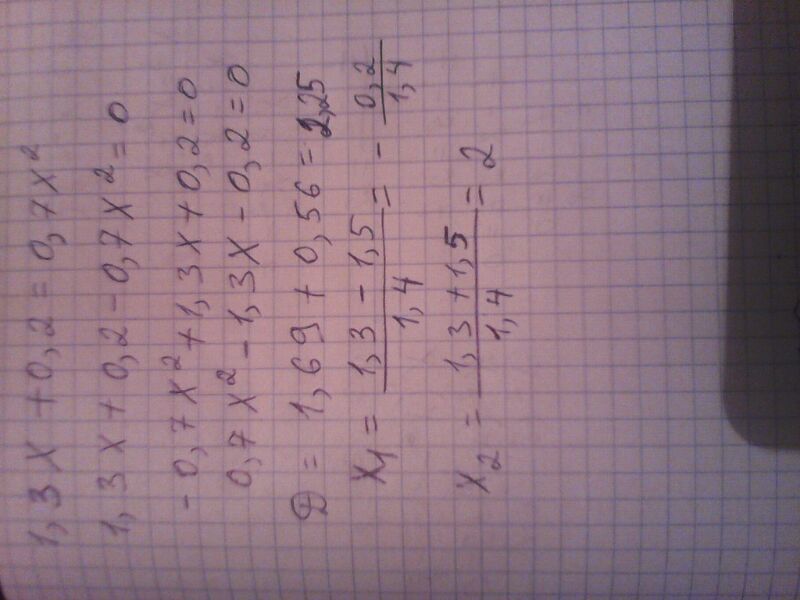 1,3x + 0,2 = 0,7x²
1,3x + 0,2 - 0,7x² = 0
- 0,7x² + 1,3x + 0,2 = 0
0,7x² - 1,3x - 0,2 = 0
D = 1,69 + 0,56 = 2,25
x₁ = (1,3 - 1,5)/1,4 = - 0,2/1,4
x₂ = (1,3 + 1,5)/1,4 = 2